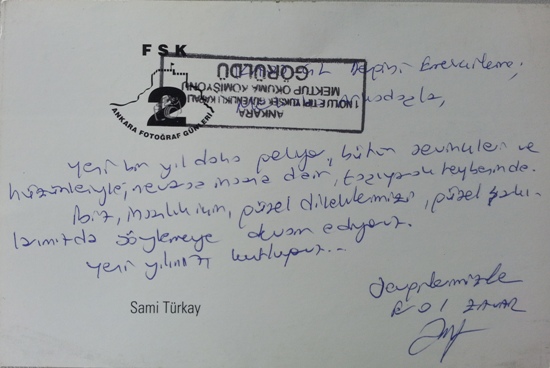 FSK
2
ANKARA FOTOĞRAF GÜNLERİ
ANKARA
1 NOLU F TİPİ YÜKSEK GÜVENLİKLİ KAPALI
MEKTUP OKUMA KOMİSYONU
GÖRÜLDÜ
Yeni bir yıl daha geliyor, bütün sevinçleri ve
hüzünleriyle, ne varsa insana dair, taşıyarak heybesinde.
Biz, insanlık için, güzel dileklerimizi, güzel şarkı-
larımızda söylemeye devam ediyoruz.
Yeni yılınızı kutluyoruz...
Sami Türkay